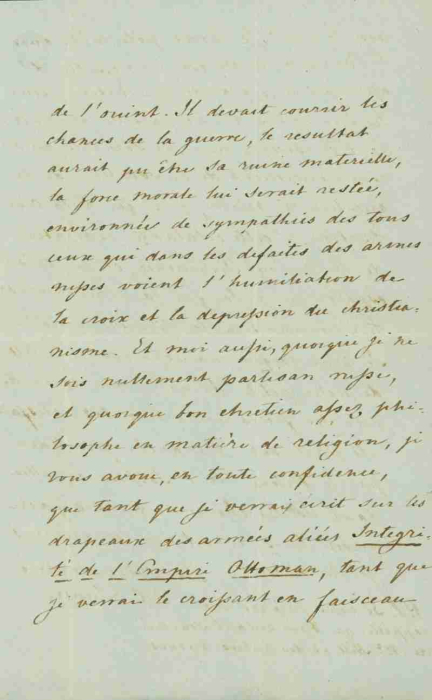 de l'orient. Il devait courrir les
chances de la guerre, le resultat
aurait pu être sa ruine materielle,
la force morale lui serait restée,
environnée de sympathies des tous
ceux qui dans les defaites des armes
russes voient l'humiliation de
la croix et la depression du christia-
nisme. Et moi aussi, quoique je ne
sois nullement partisan russe,
et quoique bon chretien assez phi-
losophe en matière de religion, je
vous avoue, en toute confidence,
que tant que je verrai écrit sur les
drapeaux des armées aliées Integri-
té de l'Empire Ottoman, tant que
je verrai le croissant en faisceau